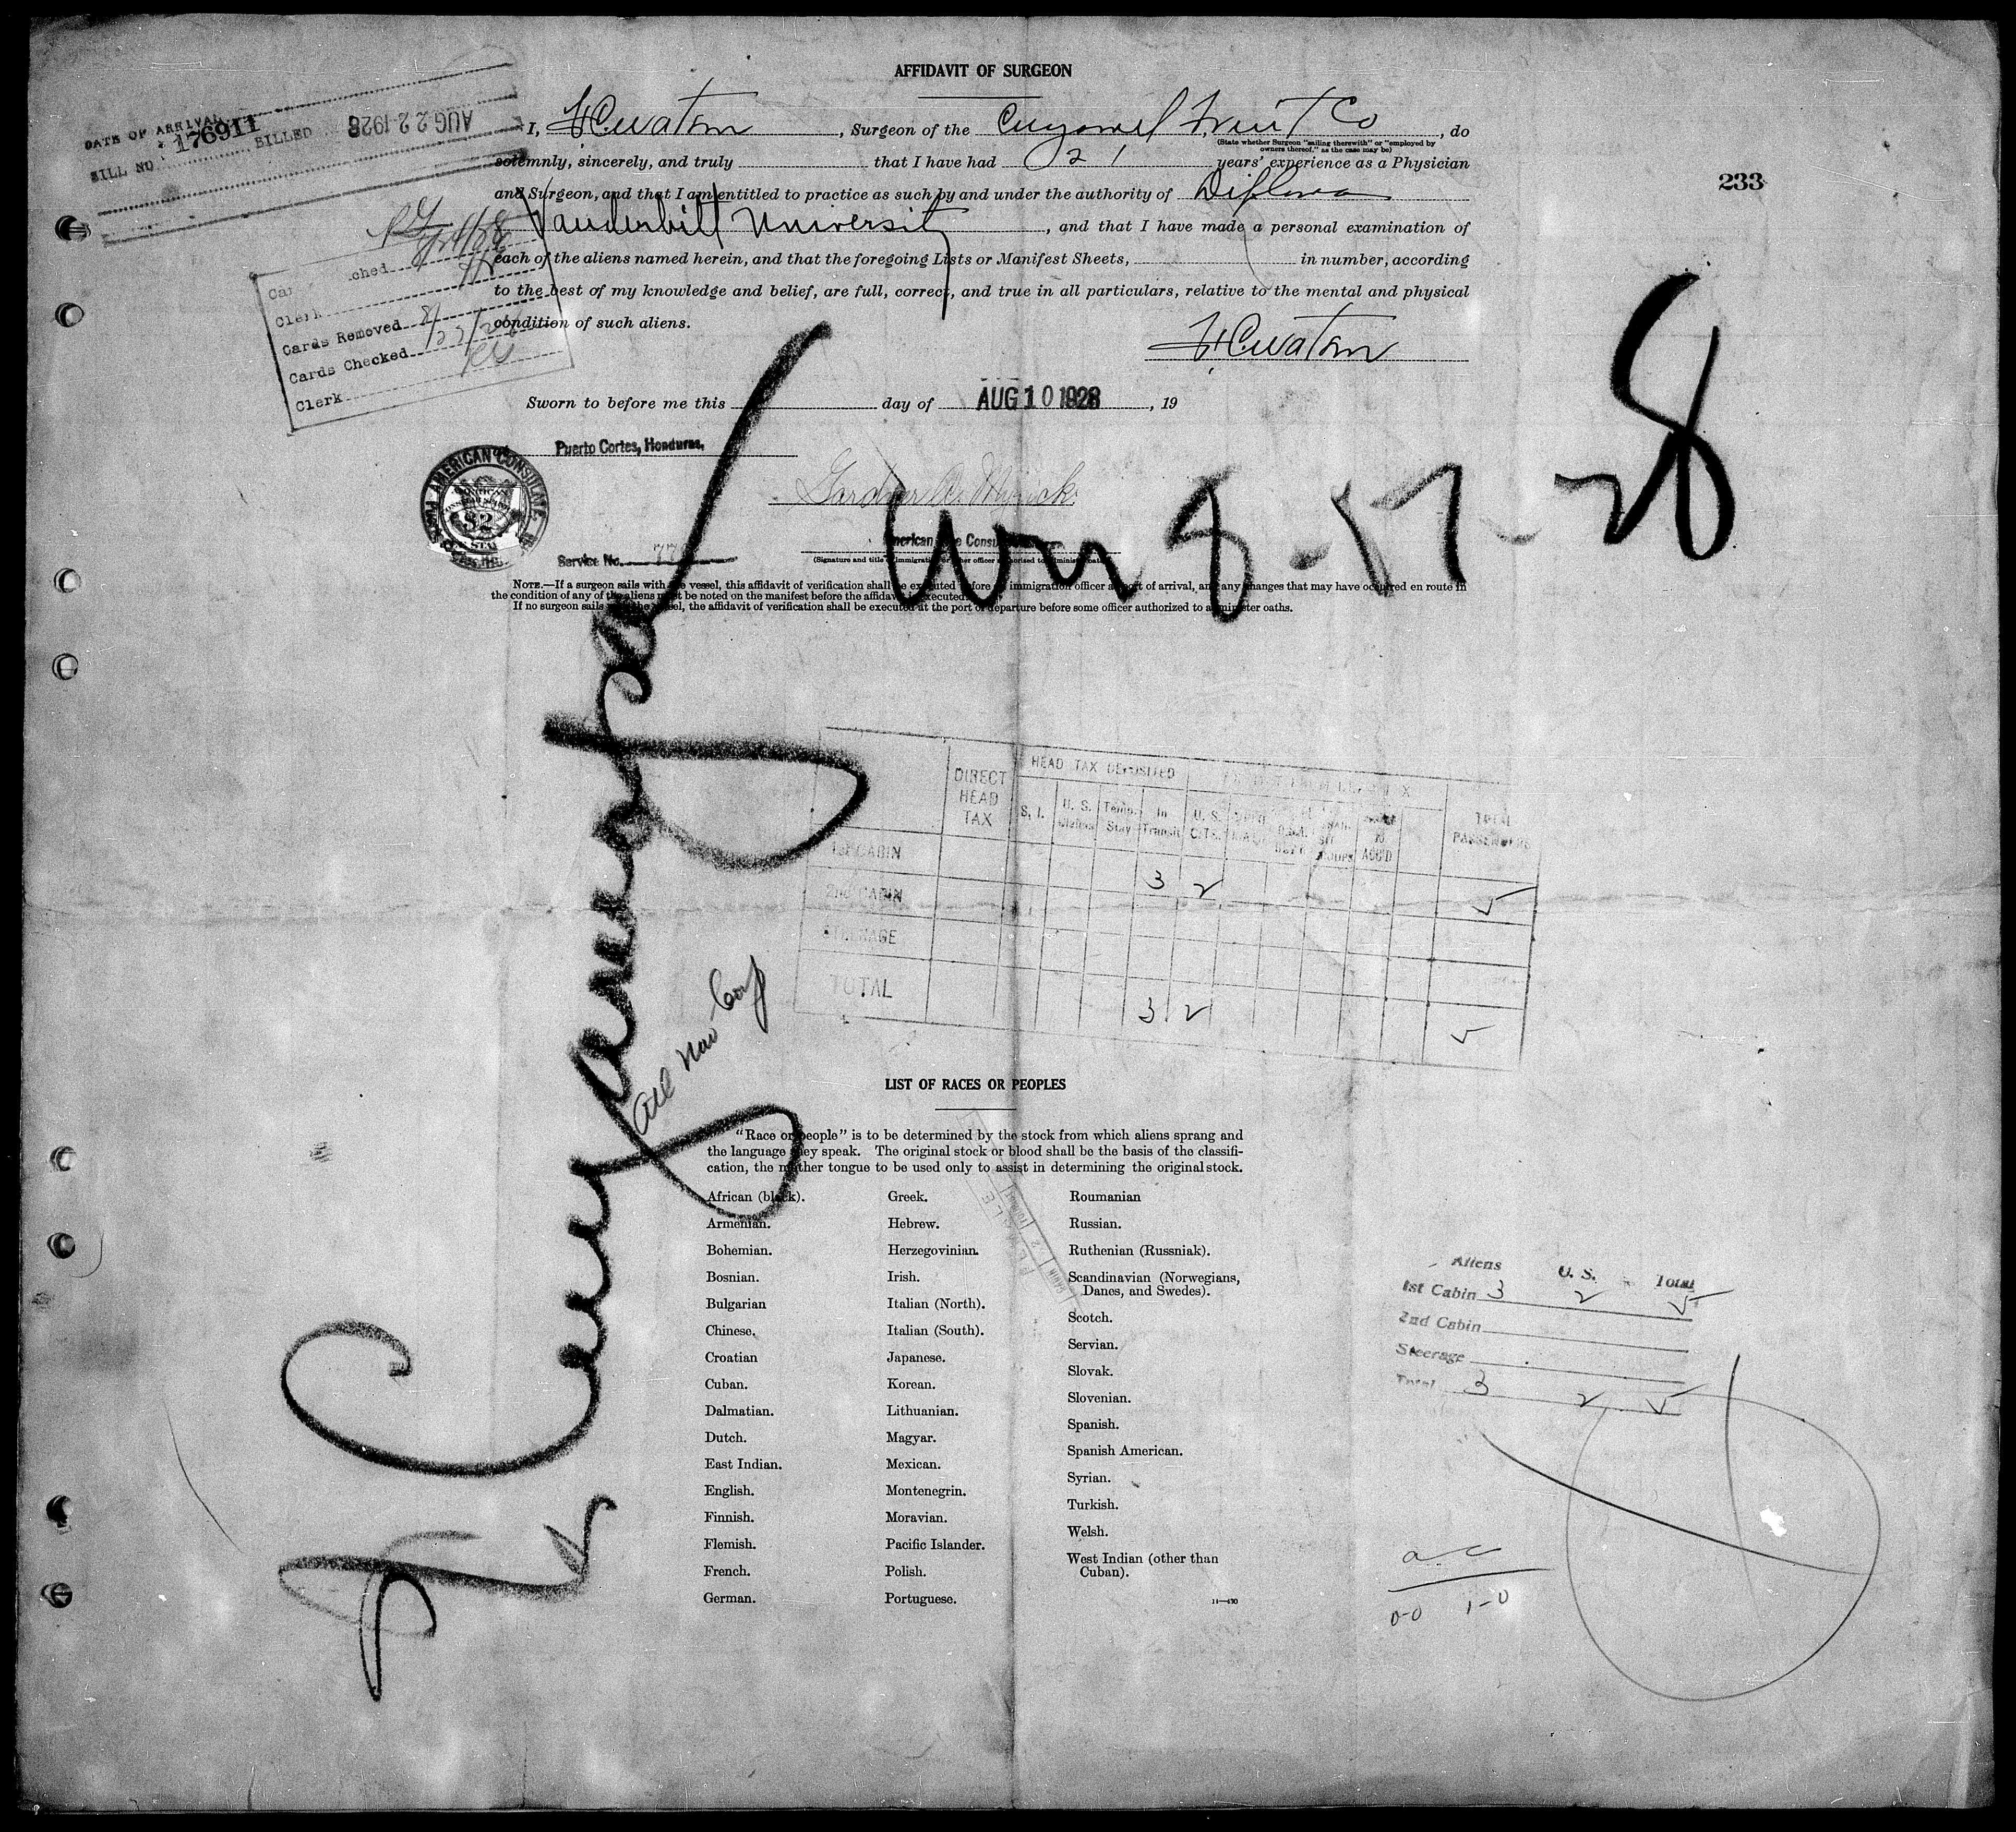 AFFIDAVIT OF SURGEON
DATE OF ARRIVAL
BILL NO. 176911 BILLED AUG 22 1928
I, , Surgeon of the Cuyamel Fruit Co , do
(State whether Surgeon "sailing therewith" or "employed by
owners thereof," as the case may be)
solemnly, sincerely, and truly that I have had 21 years' experience as a Physician
and Surgeon, and that I am entitled to practice as such by and under the authority of Diploma
Vanderbilt University, and that I have made a personal examination of
each of the aliens named herein, and that the foregoing Lists or Manifest Sheets, in number, according
to the best of my knowledge and belief, are full, correct, and true in all particulars, relative to the mental and physical
condition of such aliens.
233
ched
Clerk
Cards Removed
Cards Checked
Clerk
HCWatson
Sworn to before me this day of AUG 10 1928, 19
Puerto Cortes, Honduras,
AMERICAN CONSULATE
$2
Gardner Myrick
American Vice Consul
Service No. 77
(Signature and title of immigration or other officer authorized to administer oaths)
Wm 8-17-28
NOTE.—If a surgeon sails with the vessel, this affidavit of verification shall be executed before an immigration officer at port of arrival, and any changes that may have occurred en route in
the condition of any of the aliens must be noted on the manifest before the affidavit is executed.
If no surgeon sails with the vessel, the affidavit of verification shall be executed at the port of departure before some officer authorized to administer oaths.
DIRECT HEAD TAX
HEAD TAX DEPOSITED
S. I.
U. S.
Temp. Stay
In Transit
U. S. CITS.
TOTAL PASSENGERS
1st CABIN
3 2 5
2nd CABIN
STEERAGE
TOTAL 3 2 5
All New Conf
LIST OF RACES OR PEOPLES
"Race or people" is to be determined by the stock from which aliens sprang and
the language they speak. The original stock or blood shall be the basis of the classifi-
cation, the mother tongue to be used only to assist in determining the original stock.
African (black).
Armenian.
Bohemian.
Bosnian.
Bulgarian
Chinese.
Croatian
Cuban.
Dalmatian.
Dutch.
East Indian.
English.
Finnish.
Flemish.
French.
German.
Greek.
Hebrew.
Herzegovinian.
Irish.
Italian (North).
Italian (South).
Japanese.
Korean.
Lithuanian.
Magyar.
Mexican.
Montenegrin.
Moravian.
Pacific Islander.
Polish.
Portuguese.
Roumanian
Russian.
Ruthenian (Russniak).
Scandinavian (Norwegians,
Danes, and Swedes).
Scotch.
Servian.
Slovak.
Slovenian.
Spanish.
Spanish American.
Syrian.
Turkish.
Welsh.
West Indian (other than
Cuban).
Aliens U. S. Total
1st Cabin 3 2 5
2nd Cabin
Steerage
Total 3 2 5
a c
0-0 1-0